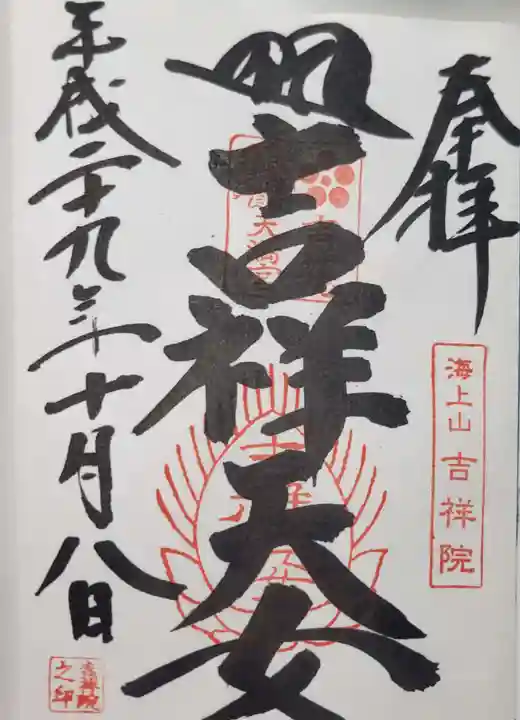 奉拝
海上山 吉祥院
吉祥天女
天満宮
平成二十九年十月八日
吉祥院之印